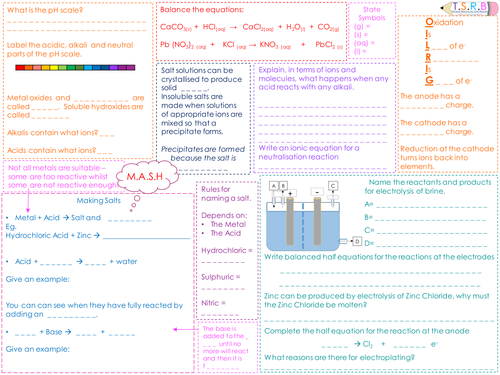 What is the pH scale?
Label the acidic, alkali and neutral
parts of the pH scale.
Metal oxides and _ _ _ _ _ _ _ _ _ _ are
called _ _ _ _ _. Soluble hydroxides are
called _ _ _ _ _ _ _
Alkalis contain what ions?_ _ _
Acids contain what ions? _ _ _
Balance the equations:
CaCO3(s) + HCl (aq) → CaCl2(aq) + H2O(l) + CO2(g)
Pb (NO3)2 (aq) + KCl (aq) → KNO3 (aq) + PbCl2 (s)
State
Symbols
(g) =
(s) =
(aq) =
(l) =
T.S.R.B
Oxidation
Is
L_ _ _ of e-
R_ _ _ _ _ _ _ _
Is
G_ _ _ of e-
The anode has a
_ _ _ _ _ _ _ _ charge.
The cathode has a
_ _ _ _ _ _ _ _ charge.
Reduction at the cathode
turns ions back into
elements.
Salt solutions can be
crystallised to produce
solid _ _ _ _ _.
Insoluble salts are
made when solutions
of appropriate ions are
mixed so that a
precipitate forms.
Precipitates are formed
because the salt is
_ _ _ _ _ _ _ _ _
Explain, in terms of ions and
molecules, what happens when any
acid reacts with any alkali.
Write an ionic equation for a
neutralisation reaction
Not all metals are suitable –
some are too reactive whilst
some are not reactive enough
M.A.S.H
Making Salts
• Metal + Acid → Salt and _ _ _ _ _ _ _ _
Eg.
Hydrochloric Acid + Zinc →
• Acid + _ _ _ _ _ _ → _ _ _ _ + water
Give an example:
You can can see when they have fully reacted by
adding an _ _ _ _ _ _ _ _ _.
• _ _ _ _ + Base → _ _ _ _ + _ _ _ _ _
Give an example:
Rules for
naming a salt.
Depends on:
• The Metal
• The Acid
Hydrochloric =
_ _ _ _ _ _ _ _
Sulphuric =
_ _ _ _ _ _ _ _
Nitric =
_ _ _ _ _ _ _
The base is
added to the _
_ _ _ until no
more will react
and then it is
f _ _ _ _ _ _ _
A B C D
+ -
Name the reactants and products
for electrolysis of brine.
A=
B=
C=
D=
Write balanced half equations for the reactions at the electrodes
Zinc can be produced by electrolysis of Zinc Chloride, why must
the Zinc Chloride be molten?
Complete the half equation for the reaction at the anode
_ _ _ _ _ → Cl2 + _ _ _ _ _ _ e-
What reasons are there for electroplating?